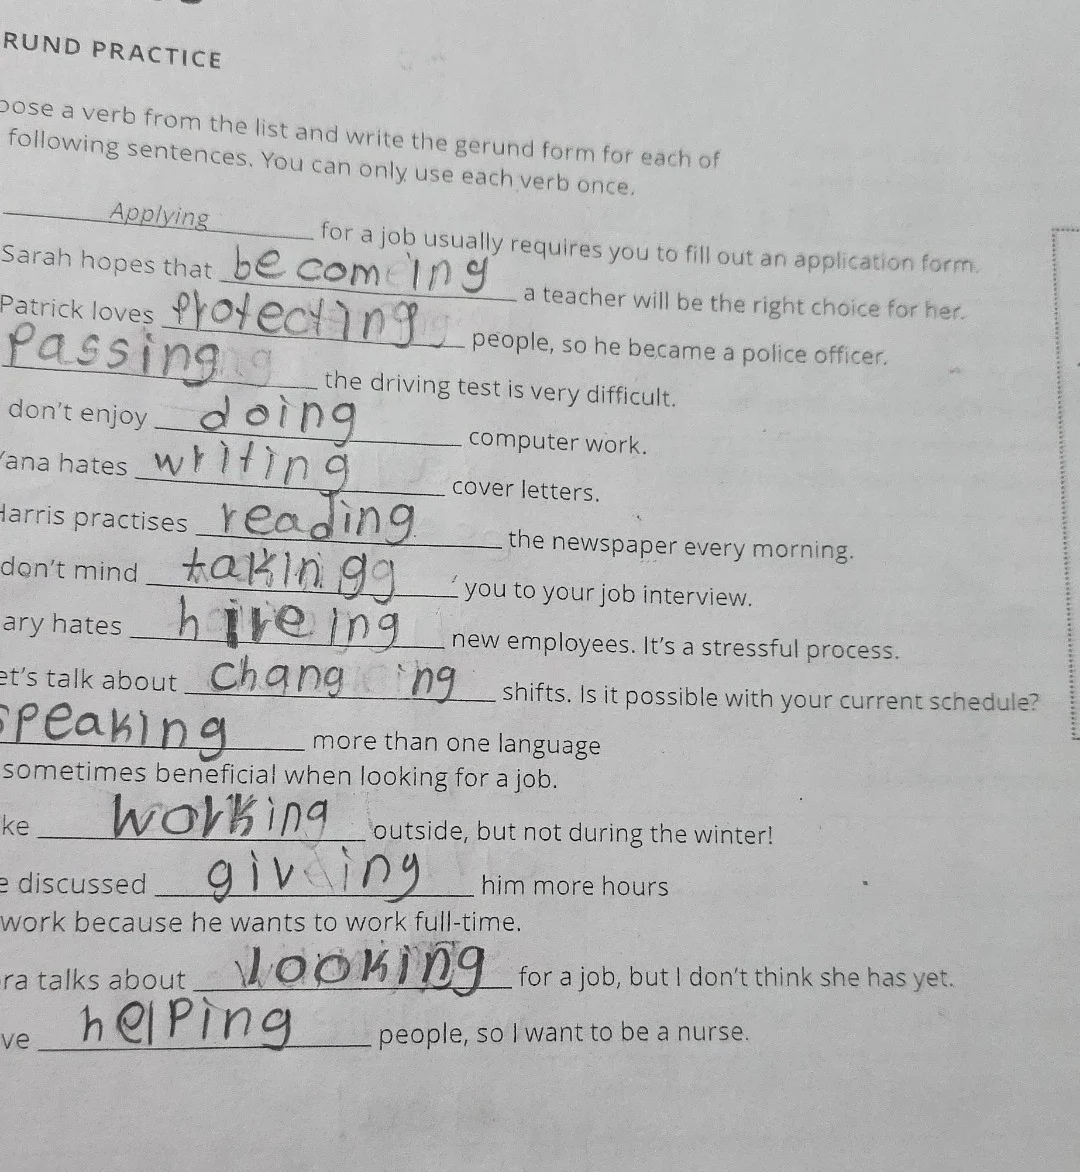 RUND PRACTICE
oose a verb from the list and write the gerund form for each of
following sentences. You can only use each verb once.
Applying for a job usually requires you to fill out an application form.
Sarah hopes that becoming a teacher will be the right choice for her.
Patrick loves protecting people, so he became a police officer.
Passing the driving test is very difficult.
don't enjoy doing computer work.
Yana hates writing cover letters.
Harris practises reading the newspaper every morning.
don't mind taking you to your job interview.
ary hates hireing new employees. It's a stressful process.
et's talk about changing shifts. Is it possible with your current schedule?
speaking more than one language
sometimes beneficial when looking for a job.
ke working outside, but not during the winter!
e discussed giving him more hours
work because he wants to work full-time.
ra talks about looking for a job, but I don't think she has yet.
ve helping people, so I want to be a nurse.